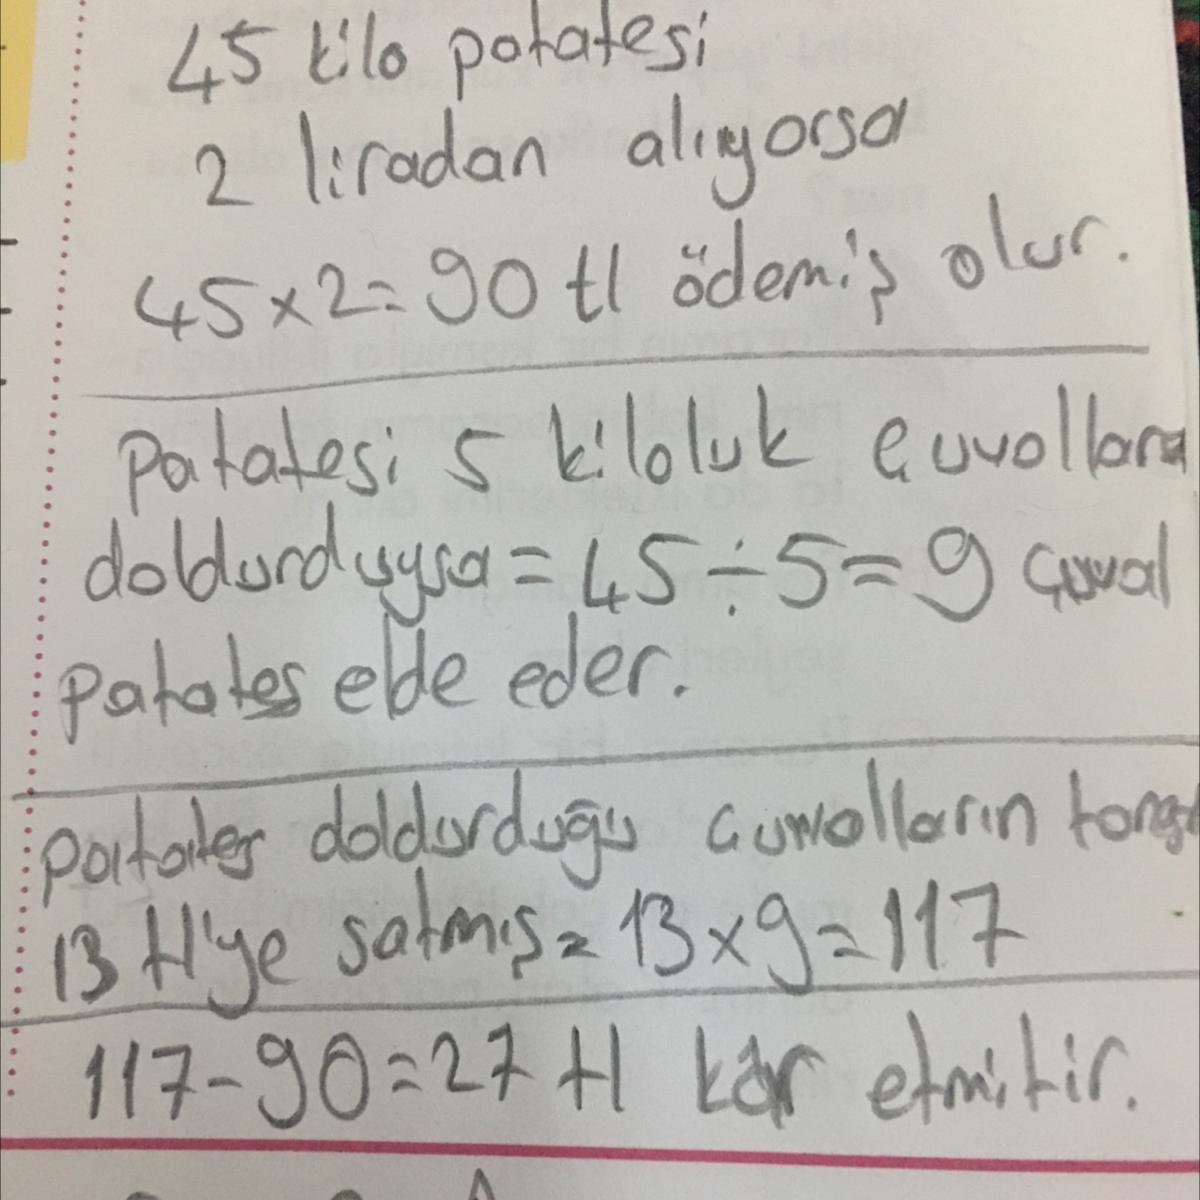 45 kilo patatesi
2 liradan alıyorsa
45x2=90 tl ödemiş olur.
Patatesi 5 kiloluk çuvallara
doldurduysa=45÷5=9 çuval
patates elde eder.
patates doldurduğu çuvalların
13 tl'ye satmış=13x9=117
117-90=27 tl kâr etmitir.